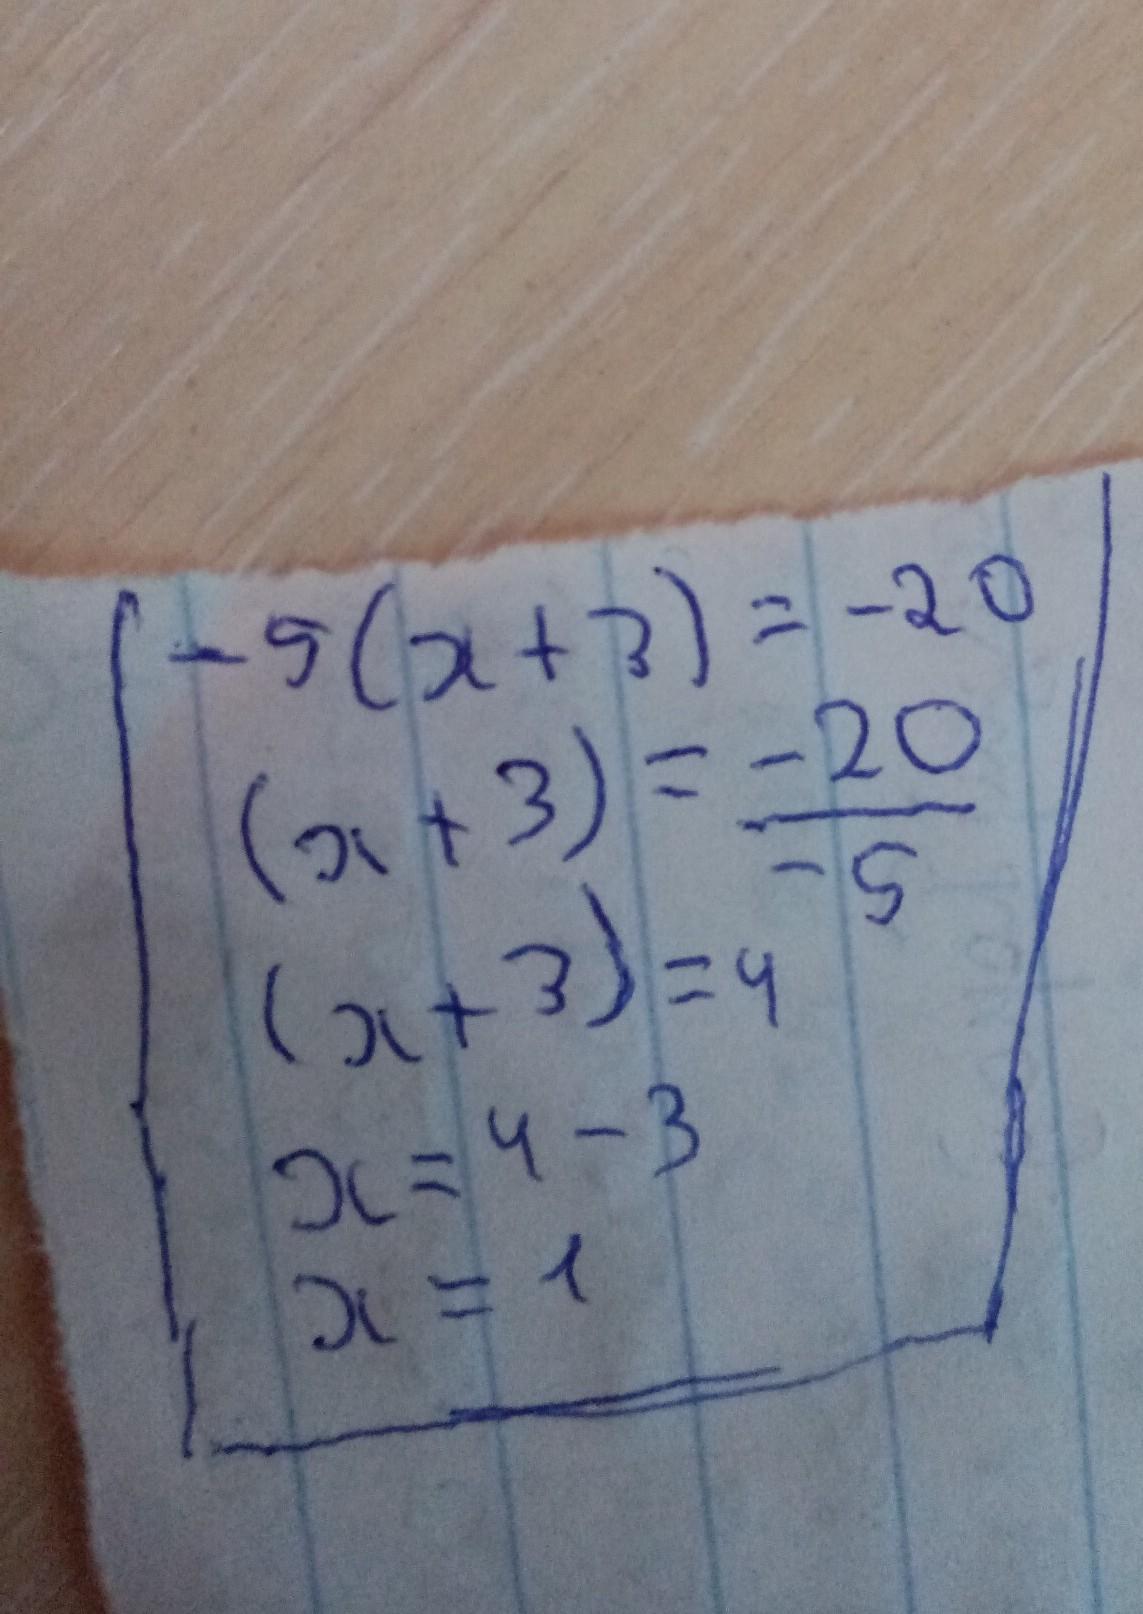 -5(x+3)=-20
(x+3)=-20/-5
(x+3)=4
x=4-3
x=1